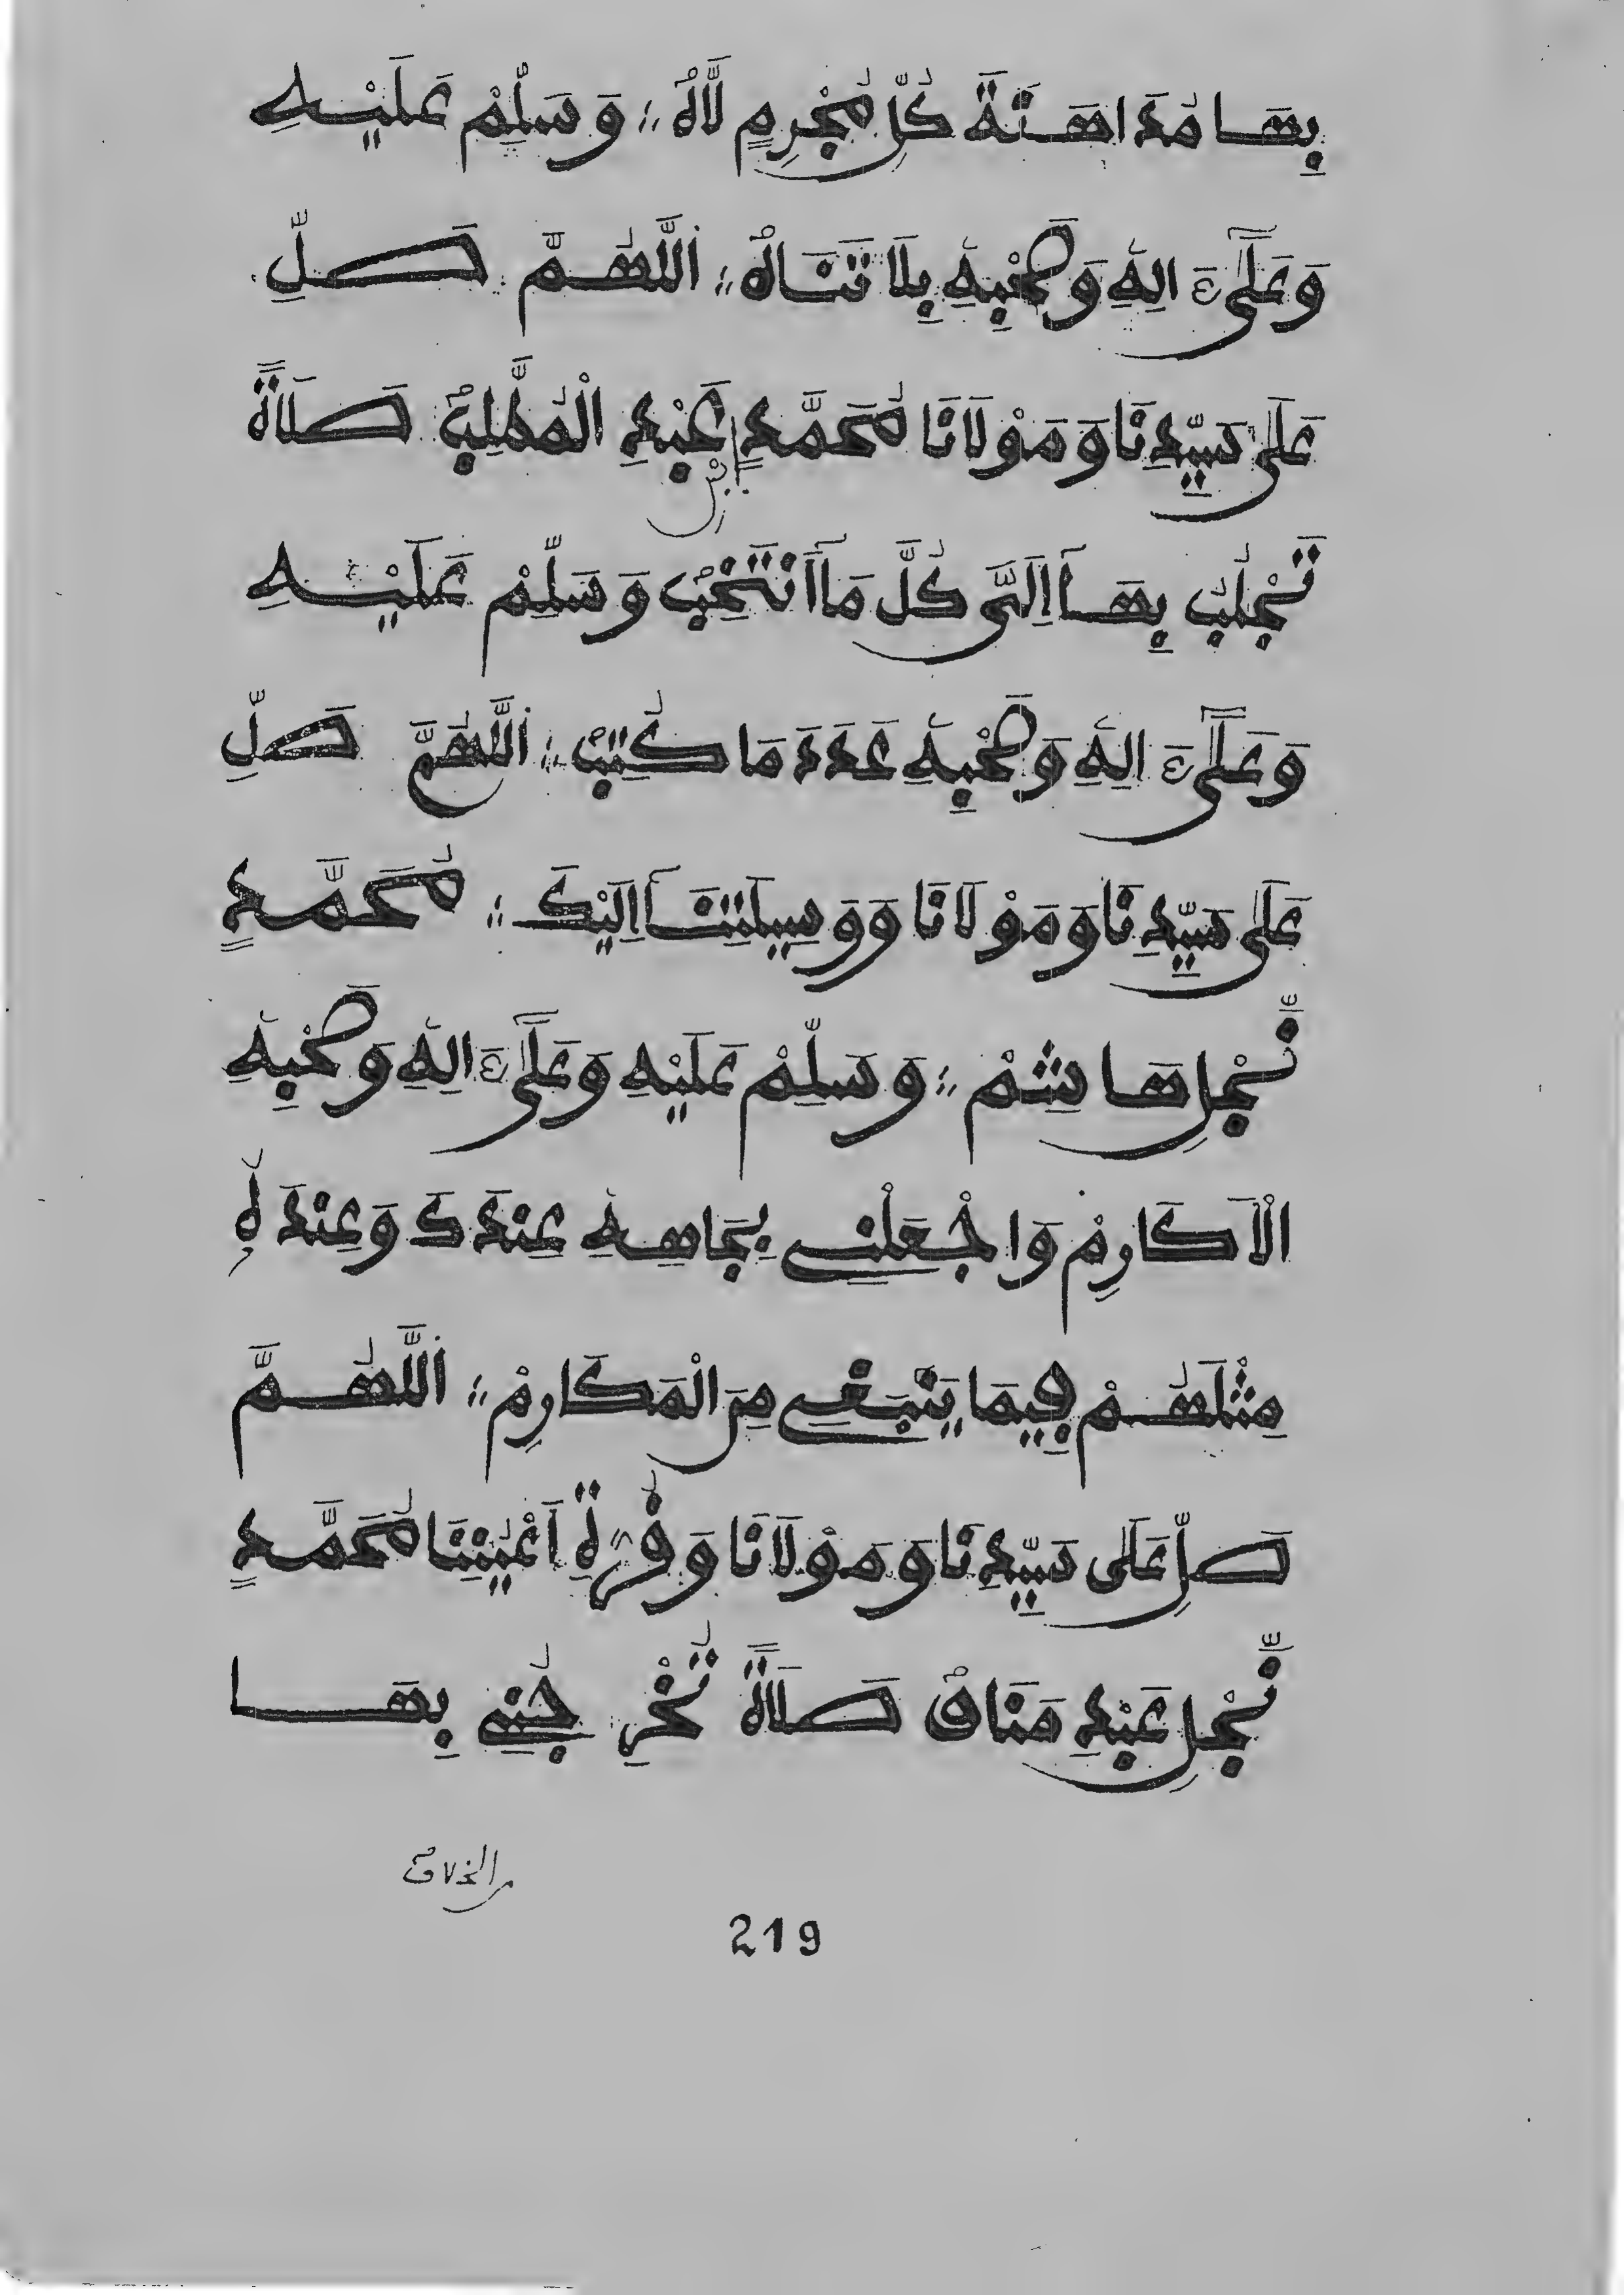 بِهَا مُدَاهَنَةَ كُلِّ مُجْرِمٍ لَّاهْ ؛؛ وَسَلِّمْ عَلَيْهِ
وَعَلَىٰٓ ءَالِهِ وَصَحْبِهِ بِلَا تَنَاهْ ؛؛ اَللَّهُمَّ صَلِّ
عَلَى سَيِّدِنَا وَمَوْلَانَا مُحَمَّدِ عَبْدِ الْمُطَّلِبْ صَلَاةً
تَجْلُبُ بِهَآ إِلَىَّ كُلَّ مَآ أَنْتَخِبْ وَسَلِّمْ عَلَيْهِ
وَعَلَىٰٓ ءَالِهِ وَصَحْبِهِ عَدَدَ مَا كُتِبْ ؛؛ اَللَّهُمَّ صَلِّ
عَلَى سَيِّدِنَا وَمَوْلَانَا وَوَسِيلَتِنَآ إِلَيْكَ ؛؛ مُحَمَّدٍ
نَّجْلِ هَاشِمْ ؛؛ وَسَلِّمْ عَلَيْهِ وَعَلَىٰٓ ءَالِهِ وَصَحْبِهِ
الْأَكَارِمْ وَاجْعَلْنِي بِجَاهِهِ عِنْدَكَ وَعِنْدَهُ
مِثْلَهُمْ فِيمَا يَنْبَغِي مِنَ الْمَكَارِمْ ؛؛ اَللَّهُمَّ
صَلِّ عَلَى سَيِّدِنَا وَمَوْلَانَا وَقُرَّةِ أَعْيُنِنَا مُحَمَّدٍ
نَّجْلِ عَبْدِ مَنَافْ صَلَاةً تُخْرِجُنِي بِهَا
من الخلاف
219